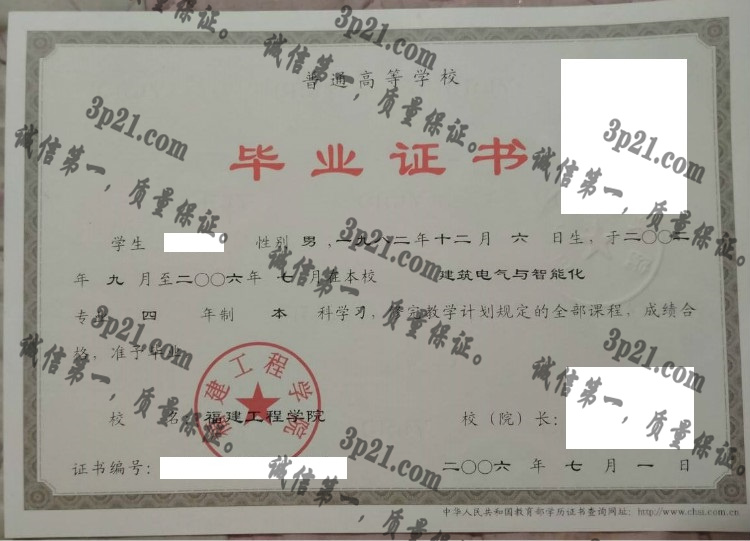 普通高等学校
毕业证书
学生 性别 男 ,一九八二年十二月 六 日生，于二〇〇二
年 九 月至二〇〇六年 七 月在本校 建筑电气与智能化
专业 四 年制 本 科学习，修完教学计划规定的全部课程，成绩合
格，准予毕业。
福建工程学院
校 名：福建工程学院 校（院）长：
证书编号： 二〇〇六 年 七 月 一 日
中华人民共和国教育部学历证书查询网址：http://www.chsi.com.cn
3p21.com
诚信第一，质量保证。
3p21.com
诚信第一，质量保证。
3p21.com
诚信第一，质量保证。
3p21.com
诚信第一，质量保证。
3p21.com
诚信第一，质量保证。
3p21.com
诚信第一，质量保证。
3p21.com
诚信第一，质量保证。
3p21.com
诚信第一，质量保证。
3p21.com
诚信第一，质量保证。